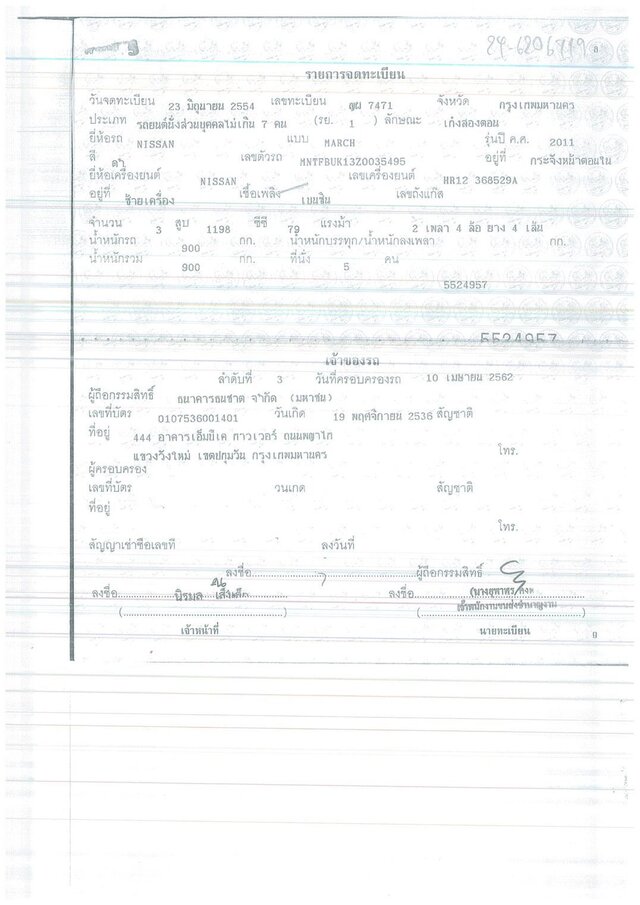 24-6206719 8
รายการจดทะเบียน
วันจดทะเบียน 23 มิถุนายน 2554 เลขทะเบียน ฎผ 7471 จังหวัด กรุงเทพมหานคร
ประเภท รถยนต์นั่งส่วนบุคคลไม่เกิน 7 คน (รย. 1 ) ลักษณะ เก๋งสองตอน
ยี่ห้อรถ NISSAN แบบ MARCH รุ่นปี ค.ศ. 2011
สี ดำ เลขตัวรถ MNTFBUK13Z0035495 อยู่ที่ กระจังหน้าตอนใน
ยี่ห้อเครื่องยนต์ NISSAN เลขเครื่องยนต์ HR12 368529A
อยู่ที่ ซ้ายเครื่อง เชื้อเพลิง เบนซิน เลขถังแก๊ส
จำนวน 3 สูบ 1198 ซีซี 79 แรงม้า 2 เพลา 4 ล้อ ยาง 4 เส้น
น้ำหนักรถ 900 กก. น้ำหนักบรรทุก/น้ำหนักลงเพลา กก.
น้ำหนักรวม 900 กก. ที่นั่ง 5 คน
5524957
5524957
เจ้าของรถ
ลำดับที่ 3 วันที่ครอบครองรถ 10 เมษายน 2562
ผู้ถือกรรมสิทธิ์ ธนาคารธนชาต จำกัด (มหาชน)
เลขที่บัตร 0107536001401 วันเกิด 19 พฤศจิกายน 2536 สัญชาติ
ที่อยู่ 444 อาคารเอ็มบีเค ทาวเวอร์ ถนนพญาไท
แขวงวังใหม่ เขตปทุมวัน กรุงเทพมหานคร โทร.
ผู้ครอบครอง
เลขที่บัตร วันเกิด สัญชาติ
ที่อยู่
โทร.
สัญญาเช่าซื้อเลขที่ ลงวันที่
ลงชื่อ ผู้ถือกรรมสิทธิ์
ลงชื่อ นิรมล ลงชื่อ
เจ้าพนักงานขนส่งชำนาญงาน
เจ้าหน้าที่ นายทะเบียน 9